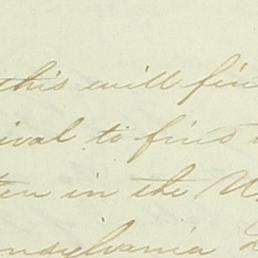 this will fin
ival to find
ten in the U
nnsylvania